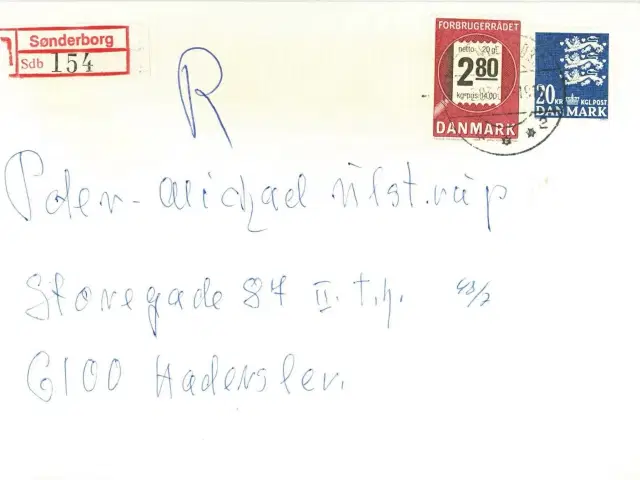 Sønderborg
Sdb 154
R
FORBRUGERRÅDET
netto 20 gr.
2 80
kg-pris 14.00
DANMARK
20 KR KGL POST
DANMARK
Peter-Michael Ulstrup
Storegade 84 II. t.h.
6100 Haderslev.